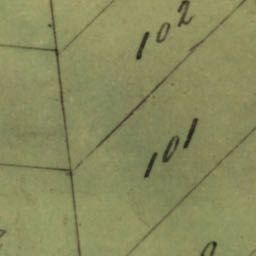 102
101